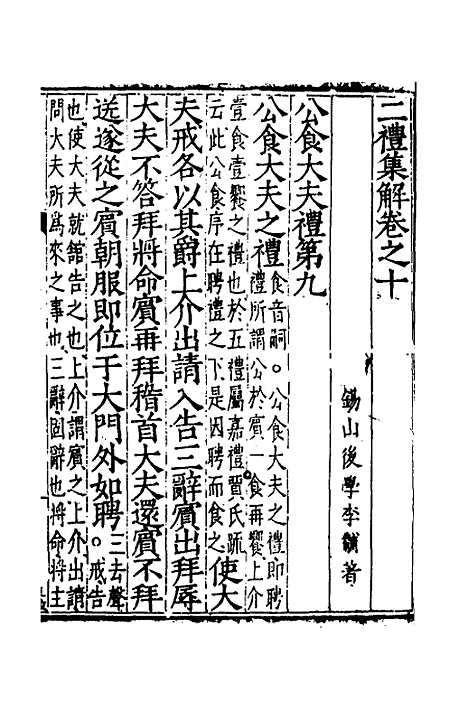 二禮集解卷之十
錫山後學李黼著
公食大夫禮第九
公食大夫之禮食音嗣。公食大夫之禮即聘
禮所謂公於賓一食再饗上介
壹食壹饗之禮也於五禮屬嘉禮賈氏疏
云此公食序在聘禮之下是因聘而食之使大
夫戒各以其爵上介出請入告三辭賓出拜辱
大夫不答拜將命賓再拜稽首大夫還賓不拜
送遂從之賓朝服即位于大門外如聘。三去聲
戒告
也使大夫就館告之也上介謂賓之上介出請
問大夫所為來之事也三辭固辭也將命將主